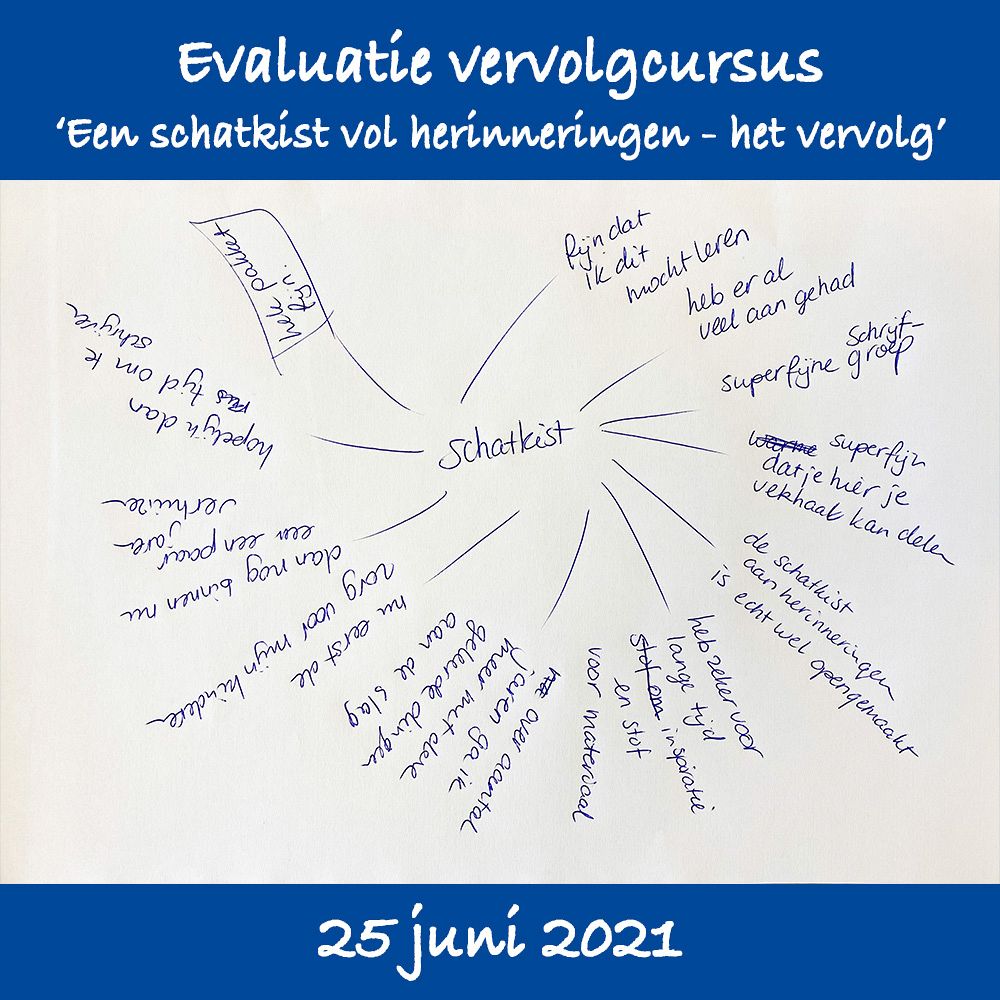 Evaluatie vervolgcursus
'Een schatkist vol herinneringen - het vervolg'
schatkist
fijn dat
ik dit
mocht leren
heb er al
veel aan gehad
superfijne schrijf-
groep
superfijn
dat je hier je
verhaal kan delen
de schatkist
aan herinneringen
is echt wel opengemaakt
heb zeker voor
lange tijd
stof om inspiratie
en stof
voor materiaal
over aantal
jaren ga ik
meer met deze
geleerde dingen
aan de slag
nu eerst de
zorg voor mijn kinderen
dan nog binnen nu
en een paar
jaren
verhuizen
hopelijk dan
tijd om te
schrijven
hele pakket
fijn.
25 juni 2021